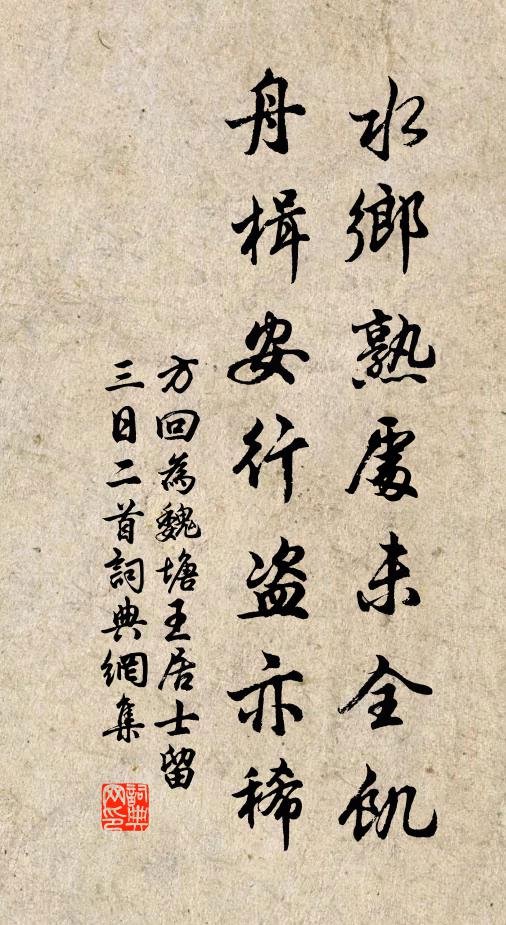 水鄉熟處未全飢
舟楫安行盜亦稀
方回為魏塘王居士留
三日二首詞典網集
詞典
网印